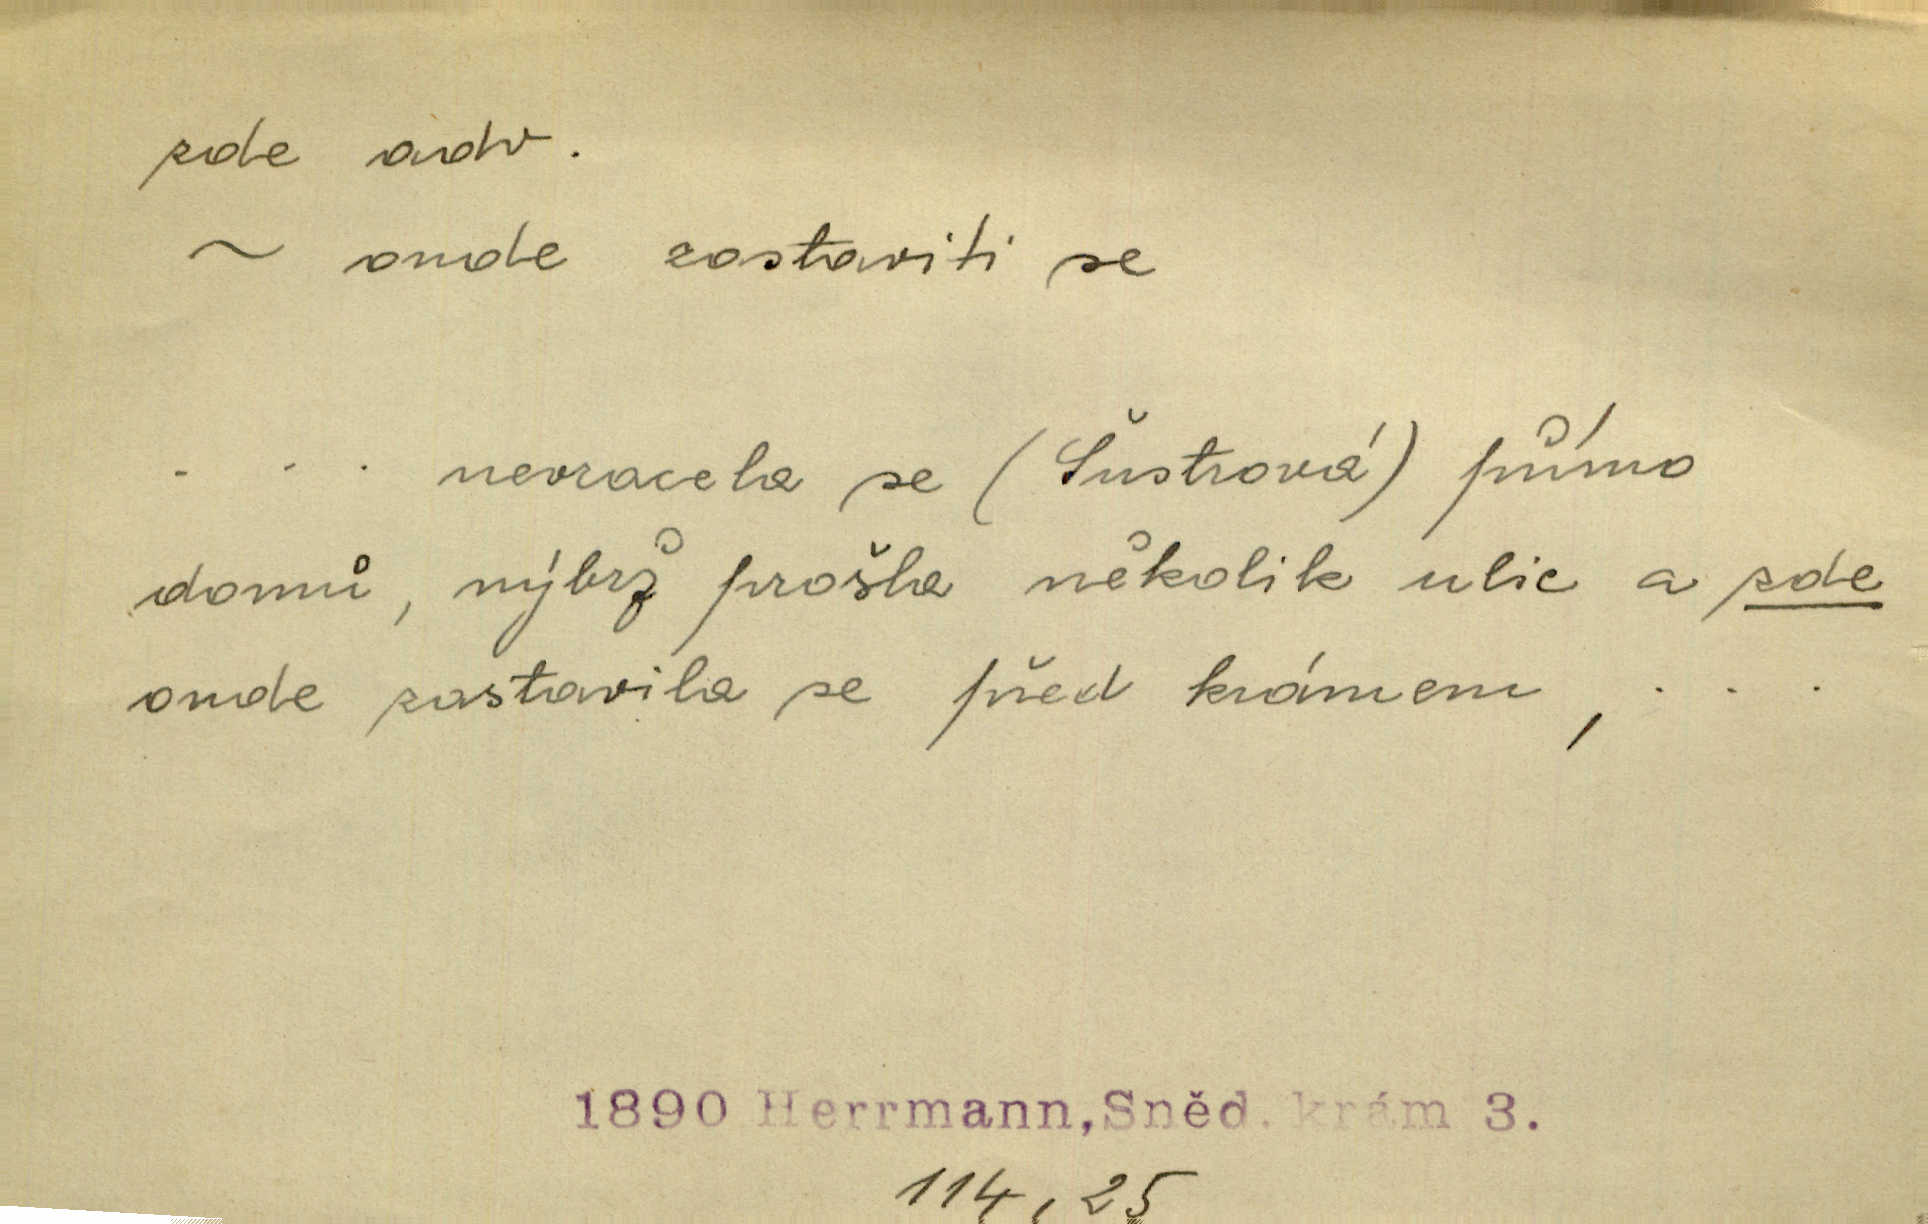 zde adv.
~ onde zastaviti se
. . . nevracela se (Šustrová) přímo
domů, nýbrž prošla několik ulic a zde
onde zastavila se před krámem, . . .
1890 Herrmann, Sněd. krám 3.
114, 25